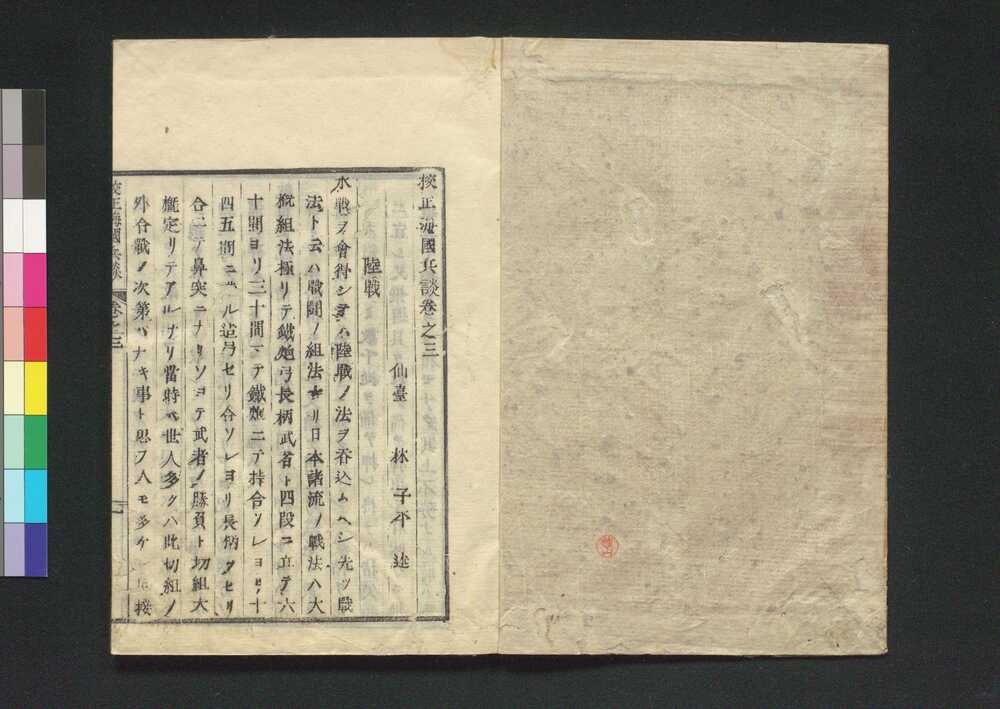 校正海國兵談卷之三
仙臺 林子平 述
陸戰
水戰ヲ會得シテハ陸戰ノ法ヲ吞込ムヘシ先ツ戰
法ト云ハ戰鬪ノ組法ナリ日本諸流ノ戰法ハ大
概組法極リテ鐵炮弓長柄武者ト四段ニ立テ六
十間ヨリ三十間マテ鐵炮ニテ持合ソレヨリ十
四五間ニ ル迠弓セリ合ソレヨリ長柄クセリ
合ニテ鼻突ニナリソヨテ武者ノ勝負ト切組大
概定リテアルナリ當時ハ世人多クハ此切組ノ
外合戰ノ次第ハナキ事ト思フ人モ多ケ 接
校正海國兵談 卷之三 一